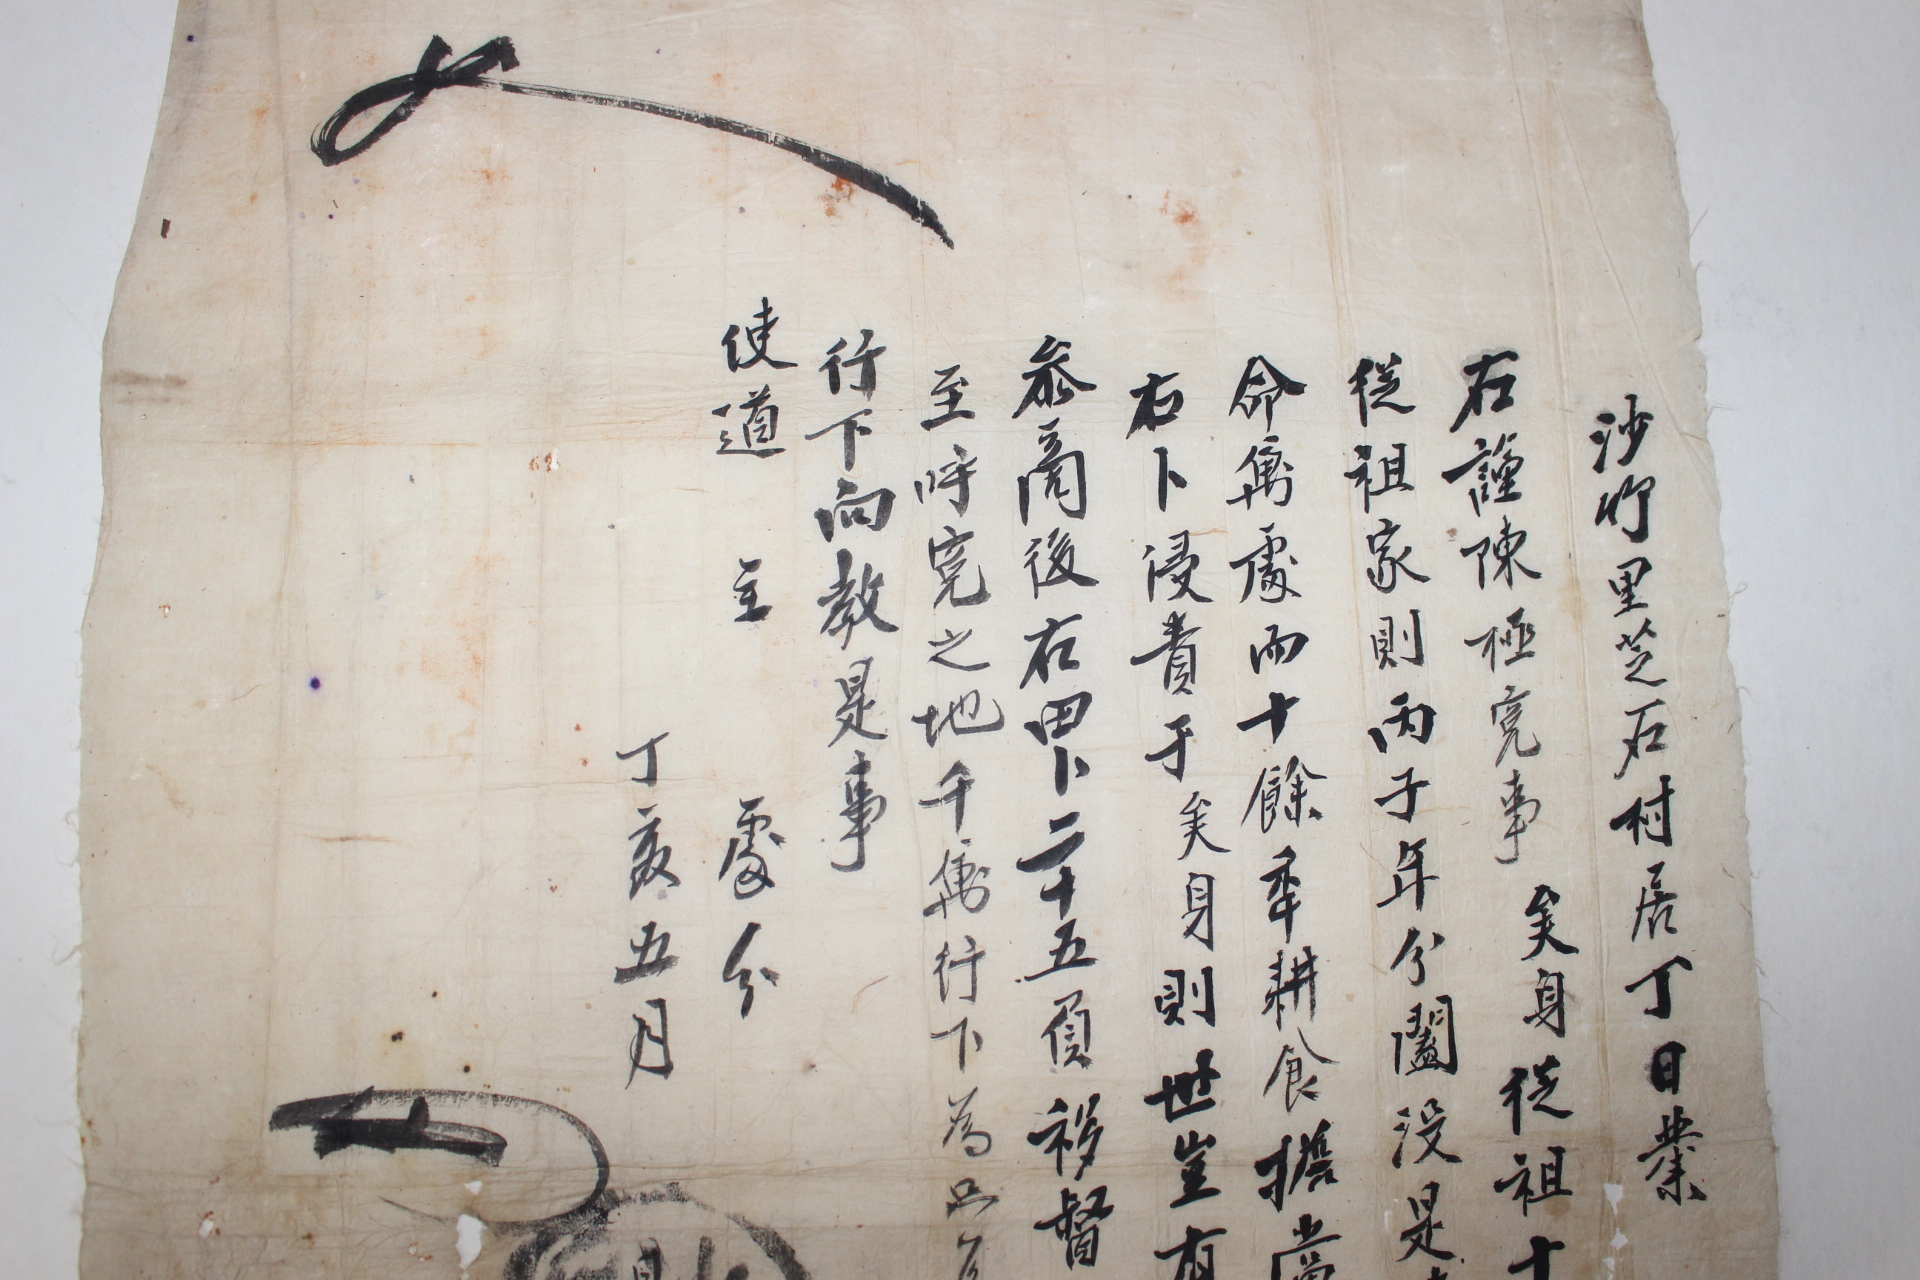 沙竹里芝石村居丁日業
右謹陳極寃事 矣身從祖十
從祖家則丙子年分闔没是
命雋處而十餘年耕食擔當
右卜浸責于矣身則世豈有
叅商後右田卜二十五負移督
至呼寃之地千萬行下為只
行下向教是事
使道 主 處分
丁亥五月